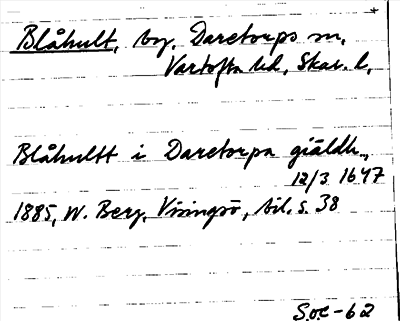 Blåhult, by, Daretorps sn,
Vartofta hd, Skar. l,
Blåhultt i Daretorpa giäldh.,
12/3 1647
1885, W. Berg, Visingsö, bil. s. 38
Soc-62